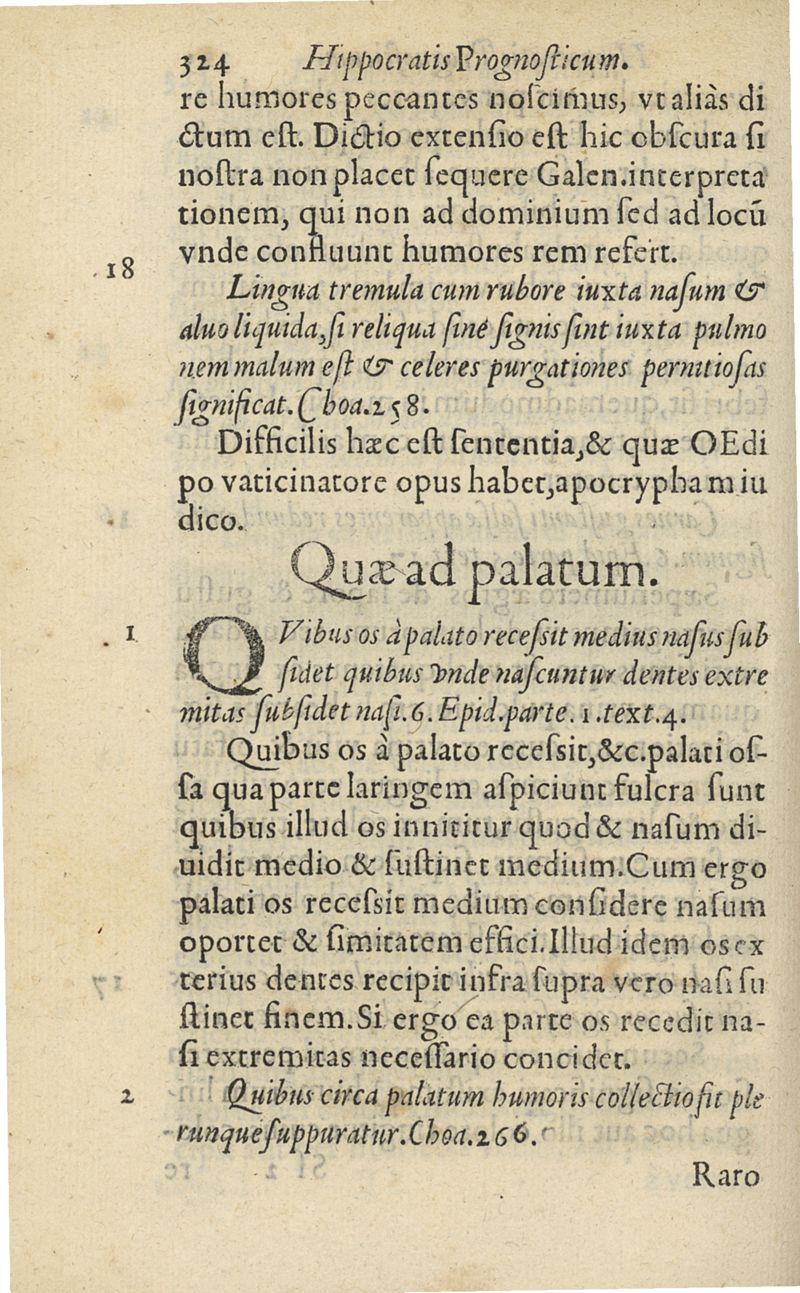 324 Hippocratis Prognoſticum.
re humores peccantes noſcimus, vt aliàs di
ctum eſt. Dictio extenſio eſt hic obſcura ſi
noſtra non placet ſequere Galen.interpreta
tionem, qui non ad dominium ſed ad locū
vnde confluunt humores rem refert.
18
Lingua tremula cum rubore iuxta naſum &
aluo liquida,ſi reliqua ſine ſignis ſint iuxta pulmo
nem malum eſt & celeres purgationes pernitioſas
ſignificat. Choa.258.
Difficilis hæc eſt ſententia,& quæ OEdi
po vaticinatore opus habet,apocrypham iu
dico.
Quæ ad palatum.
1
QVibus os à palato receſsit medius naſus ſub
ſidet quibus vnde naſcuntur dentes extre
mitas ſubſidet naſi.6.Epid.parte.1.text.4.
Quibus os à palato receſsit,&c.palati oſ-
ſa qua parte laringem aſpiciunt fulcra ſunt
quibus illud os innititur quod & naſum di-
uidit medio & ſuſtinet medium.Cum ergo
palati os receſsit medium conſidere naſum
oportet & ſimitatem effici.Illud idem os ex
terius dentes recipit infra ſupra vero naſi ſu
ſtinet finem.Si ergo ea parte os recedit na-
ſi extremitas neceſſario concidet.
2
Quibus circa palatum humoris collectio fit ple
runque ſuppuratur.Choa.266.
Raro